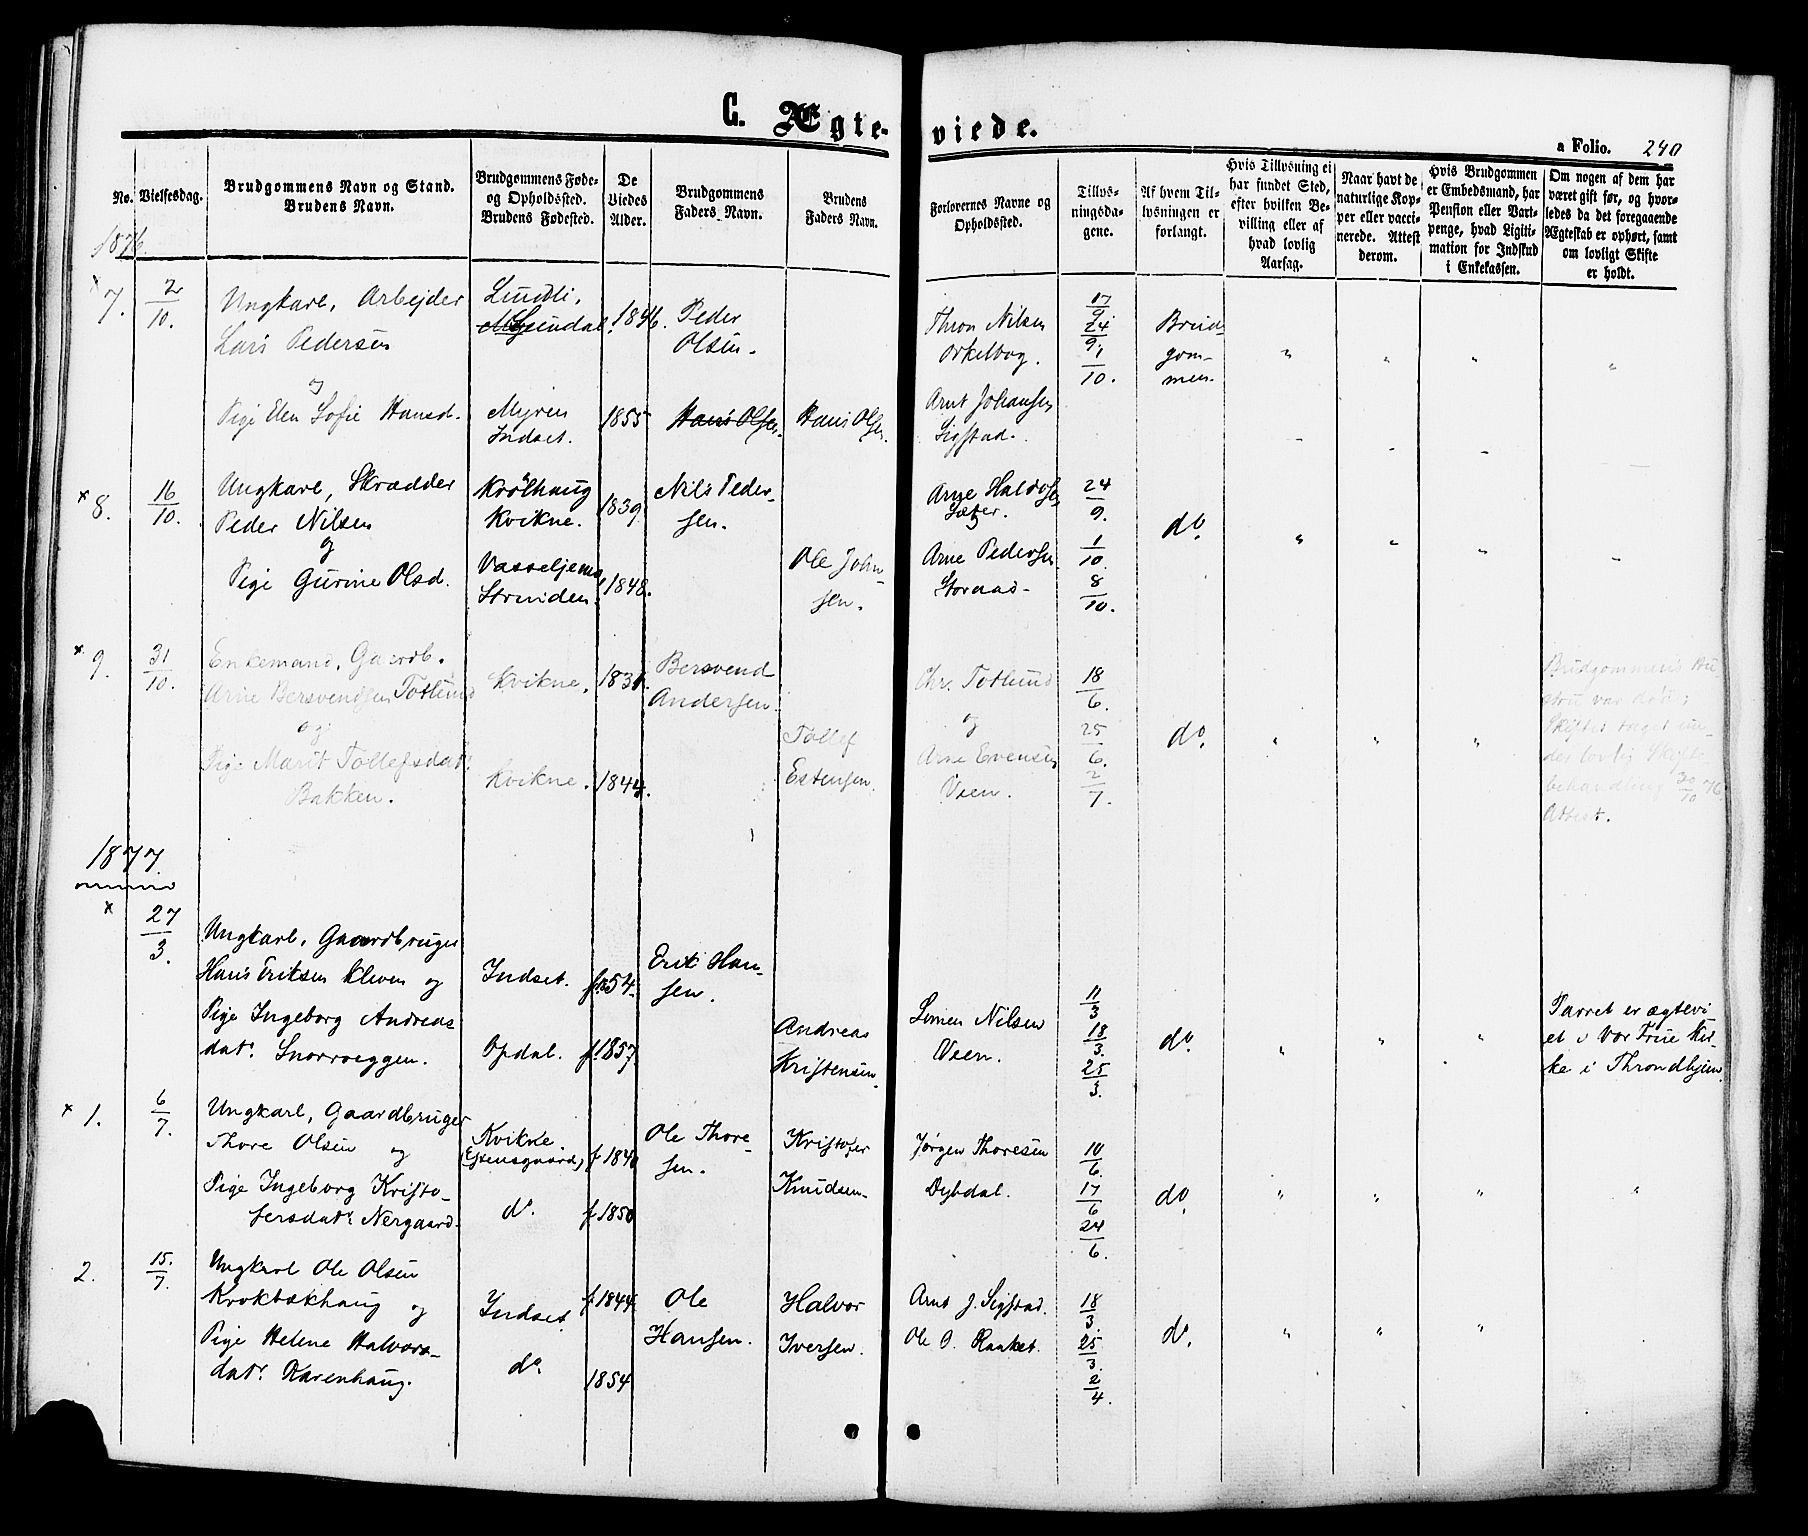 C. Ægteviede.
a Folio. 240
No.
Vielsesdag.
Brudgommens Navn og Stand.
Brudens Navn.
Brudgommens Føde-
og Opholdssted.
Brudens Fødested.
De
Viedes
Alder.
Brudgommens
Faders Navn.
Brudens
Faders Navn.
Forlovernes Navne og
Opholdssted.
Tillys-
ningsda-
gene.
Af hvem Til-
lysningen er
forlangt.
Hvis Tillysning ei
har fundet Sted,
efter hvilken Be-
villing eller af
hvad lovlig
Aarsag.
Naar havt de
naturlige Kop-
per eller vacci-
nerede. Attest
derom.
Hvis Brudgommen
er Embedsmand, har
Pension eller Vart-
penge, hvad Ligiti-
mation for Indskud
i Enkekassen.
Om nogen af dem har
været gift før, og hvor-
ledes da det foregaaende
Ægteskab er ophørt, samt
om lovligt Skifte
er holdt.
1876.
× 7. 2/10.
Ungkarl, Arbejder
Lars Pedersen
og
Pige Elen Sofie Hansd.
Lundli,
Myren
Indset.
1846.
1855
Peder
Olsen.
Hans Olsen.
Hans Olsen.
Thron Nilsen
Orkelbog.
Arnt Johansen
Sigstad.
17/9
24/9.
1/10.
Brud-
gom-
men.
" " " "
× 8. 16/10.
Ungkarl, Skrædder
Peder Nilsen
og
Pige Gurine Olsd.
Krølhaug
Kvikne.
Vasseljemo
Strinden.
1839
1848.
Nils Peder-
sen.
Ole John-
sen.
Arne Halvorsen
Sæter.
Arne Pedersen
Storaas-
24/9.
1/10.
8/10.
do.
× 9. 31/10.
Enkemand, Gaardb.
Arne Bersvendsen Totlund
og
Pige Marit Tollefsdatr
Bakken.
Kvikne.
Kvikne.
1831.
1844.
Bersvend
Andersen.
Tollef
Estensen.
Chr. Totlund
og
Arne Evensen
Veen.
18/6.
25/6.
2/7.
do.
" " "
Brudgommens Hu-
stru var død;
Skiftet taget un-
der lovlig Skifte-
behandling 30/10 76.
Attest.
1877.
× 27/3.
Ungkarl, Gaardbruger
Hans Eriksen Kleven og
Pige Ingeborg Andreas
datr. Snorroeggen.
Indset.
Opdal.
f.1854.
f.1857.
Erik Han-
sen.
Andreas
Kristensen.
Simen Nilsen
Veen.
11/3
18/3.
25/3.
do.
" " "
Parret er ægtevi-
et i Vor Frue Kir-
ke i Throndhjem.
× 1. 6/7.
Ungkarl, Gaardbruger
Thore Olsen og
Pige Ingeborg Kristo-
fersdatr Nergaard.
Kvikne.
(Estensgaard)
do.
f 1840
f 1850
Ole Thore-
sen.
Kristofer
Knudsen.
Jørgen Thoresen
Dybdal.
10/6.
17/6
24/6.
do.
" " " "
2. 15./7.
Ungkarl Ole Olsen
Krokbækhaug og
Pige Helene Halvors-
datr. Karenhaug.
Indset.
do.
f 1844.
1854
Ole
Hansen.
Halvor
Iversen.
Arnt J. Sigstad.
Ole O. Raaket.
18/3.
25/3.
2/4.
do.
" " "